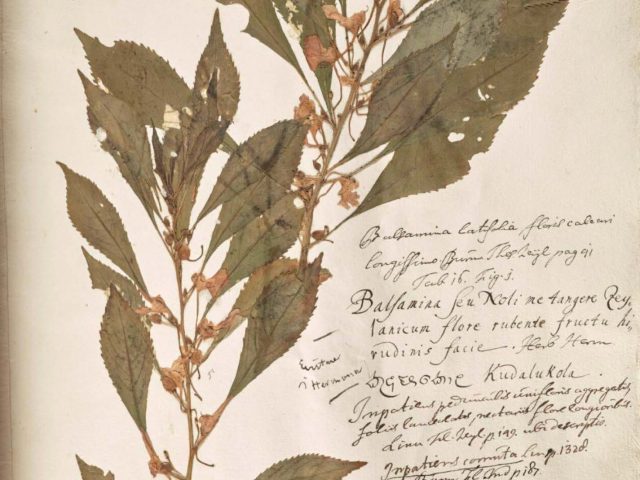 Balsamina latifolia floris calcari
longissimo Burm Thes Zeyl pag 41
Tab 16. Fig. 3.
Balsamina seu Noli me tangere Zey
lanicum flore rubente fructu hi
rudinis facie. Herb Herm
Kudalukola.
Impatiens pedunculis unifloris aggregatis
foliis lanceolatis, nectariis flore longioribus.
Linn fl. Zeyl p. 149. ubi descriptio.
Impatiens cornuta Linn p. 1328.
fl. Ind p 187.
Hermann